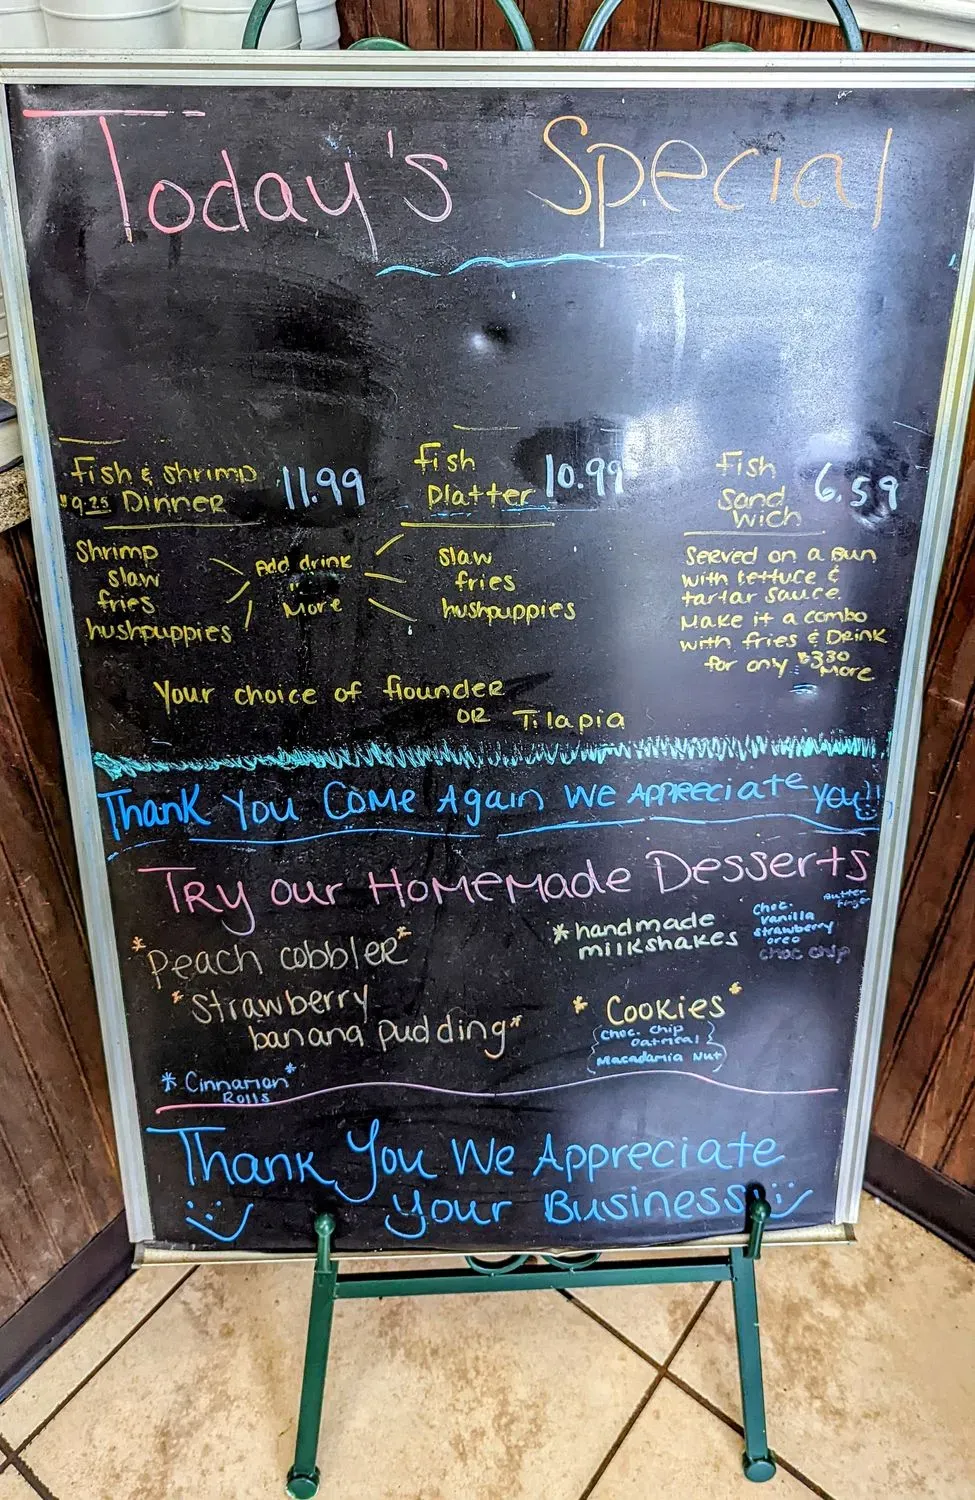 Today's Special
Fish & Shrimp
$9.25 Dinner
11.99
Shrimp
slaw
fries
hushpuppies
Add drink
More
Fish
Platter
10.99
slaw
fries
hushpuppies
Fish
Sand
wich
6.59
Served on a Bun
with lettuce &
tartar sauce.
Make it a combo
with fries & Drink
for only $3.30
More
Your choice of flounder
OR Tilapia
Thank You Come Again We Appreciate you!!
Try our Homemade Desserts
*Peach cobbler*
*Strawberry
banana pudding*
*Cinnamon*
Rolls
*handmade
milkshakes
Choc.
vanilla
strawberry
oreo
choc chip
Butter
finger
* Cookies *
Choc. Chip
Oatmeal
Macadamia Nut
Thank You We Appreciate
Your Business!